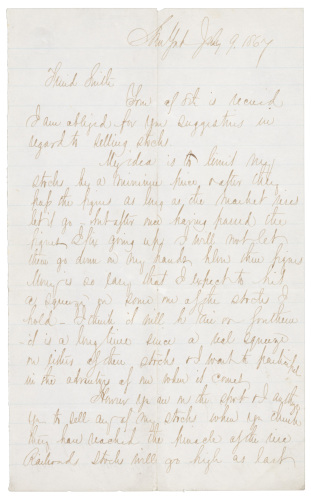 New York July 9, 1867
Friend Smith
Yours of 8th is received
I am obliged for your suggestions in
regard to selling stock
My idea is to limit my
stocks, by a minimum price & after they
pass the figure as long as the market rises
let it go - but after once having passed the
figure & the going up, I will not let
them go down on my hands, below their figure
Money is so easy that I expect to hit
a squeeze on some one of the stocks I
hold - I think it will be Erie or Southern
- it is a long time since a real squeeze
on either of these stocks & want to participate
in the advantage of one when it comes
However you are on the spot & I authorize
you to sell any of my stocks when you think
they have reached the pinnacle of the rise
Railroad stocks will go high as last